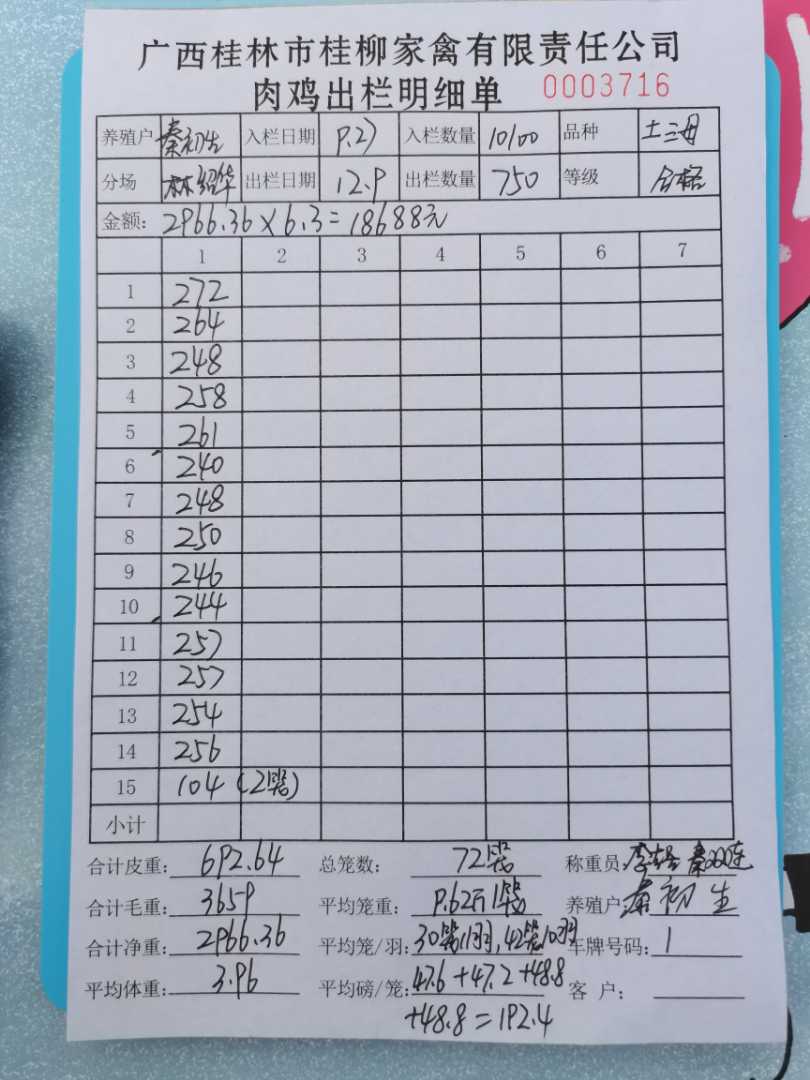 广西桂林市桂柳家禽有限责任公司
肉鸡出栏明细单 0003716
养殖户 秦初生 入栏日期 9.27 入栏数量 10100 品种 土三母
分场 林绍华 出栏日期 12.9 出栏数量 750 等级 合格
金额: 2966.36×6.3=18688元
1 2 3 4 5 6 7
1 272
2 264
3 248
4 258
5 261
6 240
7 248
8 250
9 246
10 244
11 257
12 257
13 254
14 256
15 104 (2笼)
小计
合计皮重: 692.64 总笼数: 72笼 称重员:
合计毛重: 3659 平均笼重: 9.62斤/笼 养殖户: 秦初生
合计净重: 2966.36 平均笼/羽: 30笼11羽,42笼10羽 车牌号码: 1
平均体重: 3.96 平均磅/笼: 47.6+47.2+48.8 客 户:
+48.8=192.4